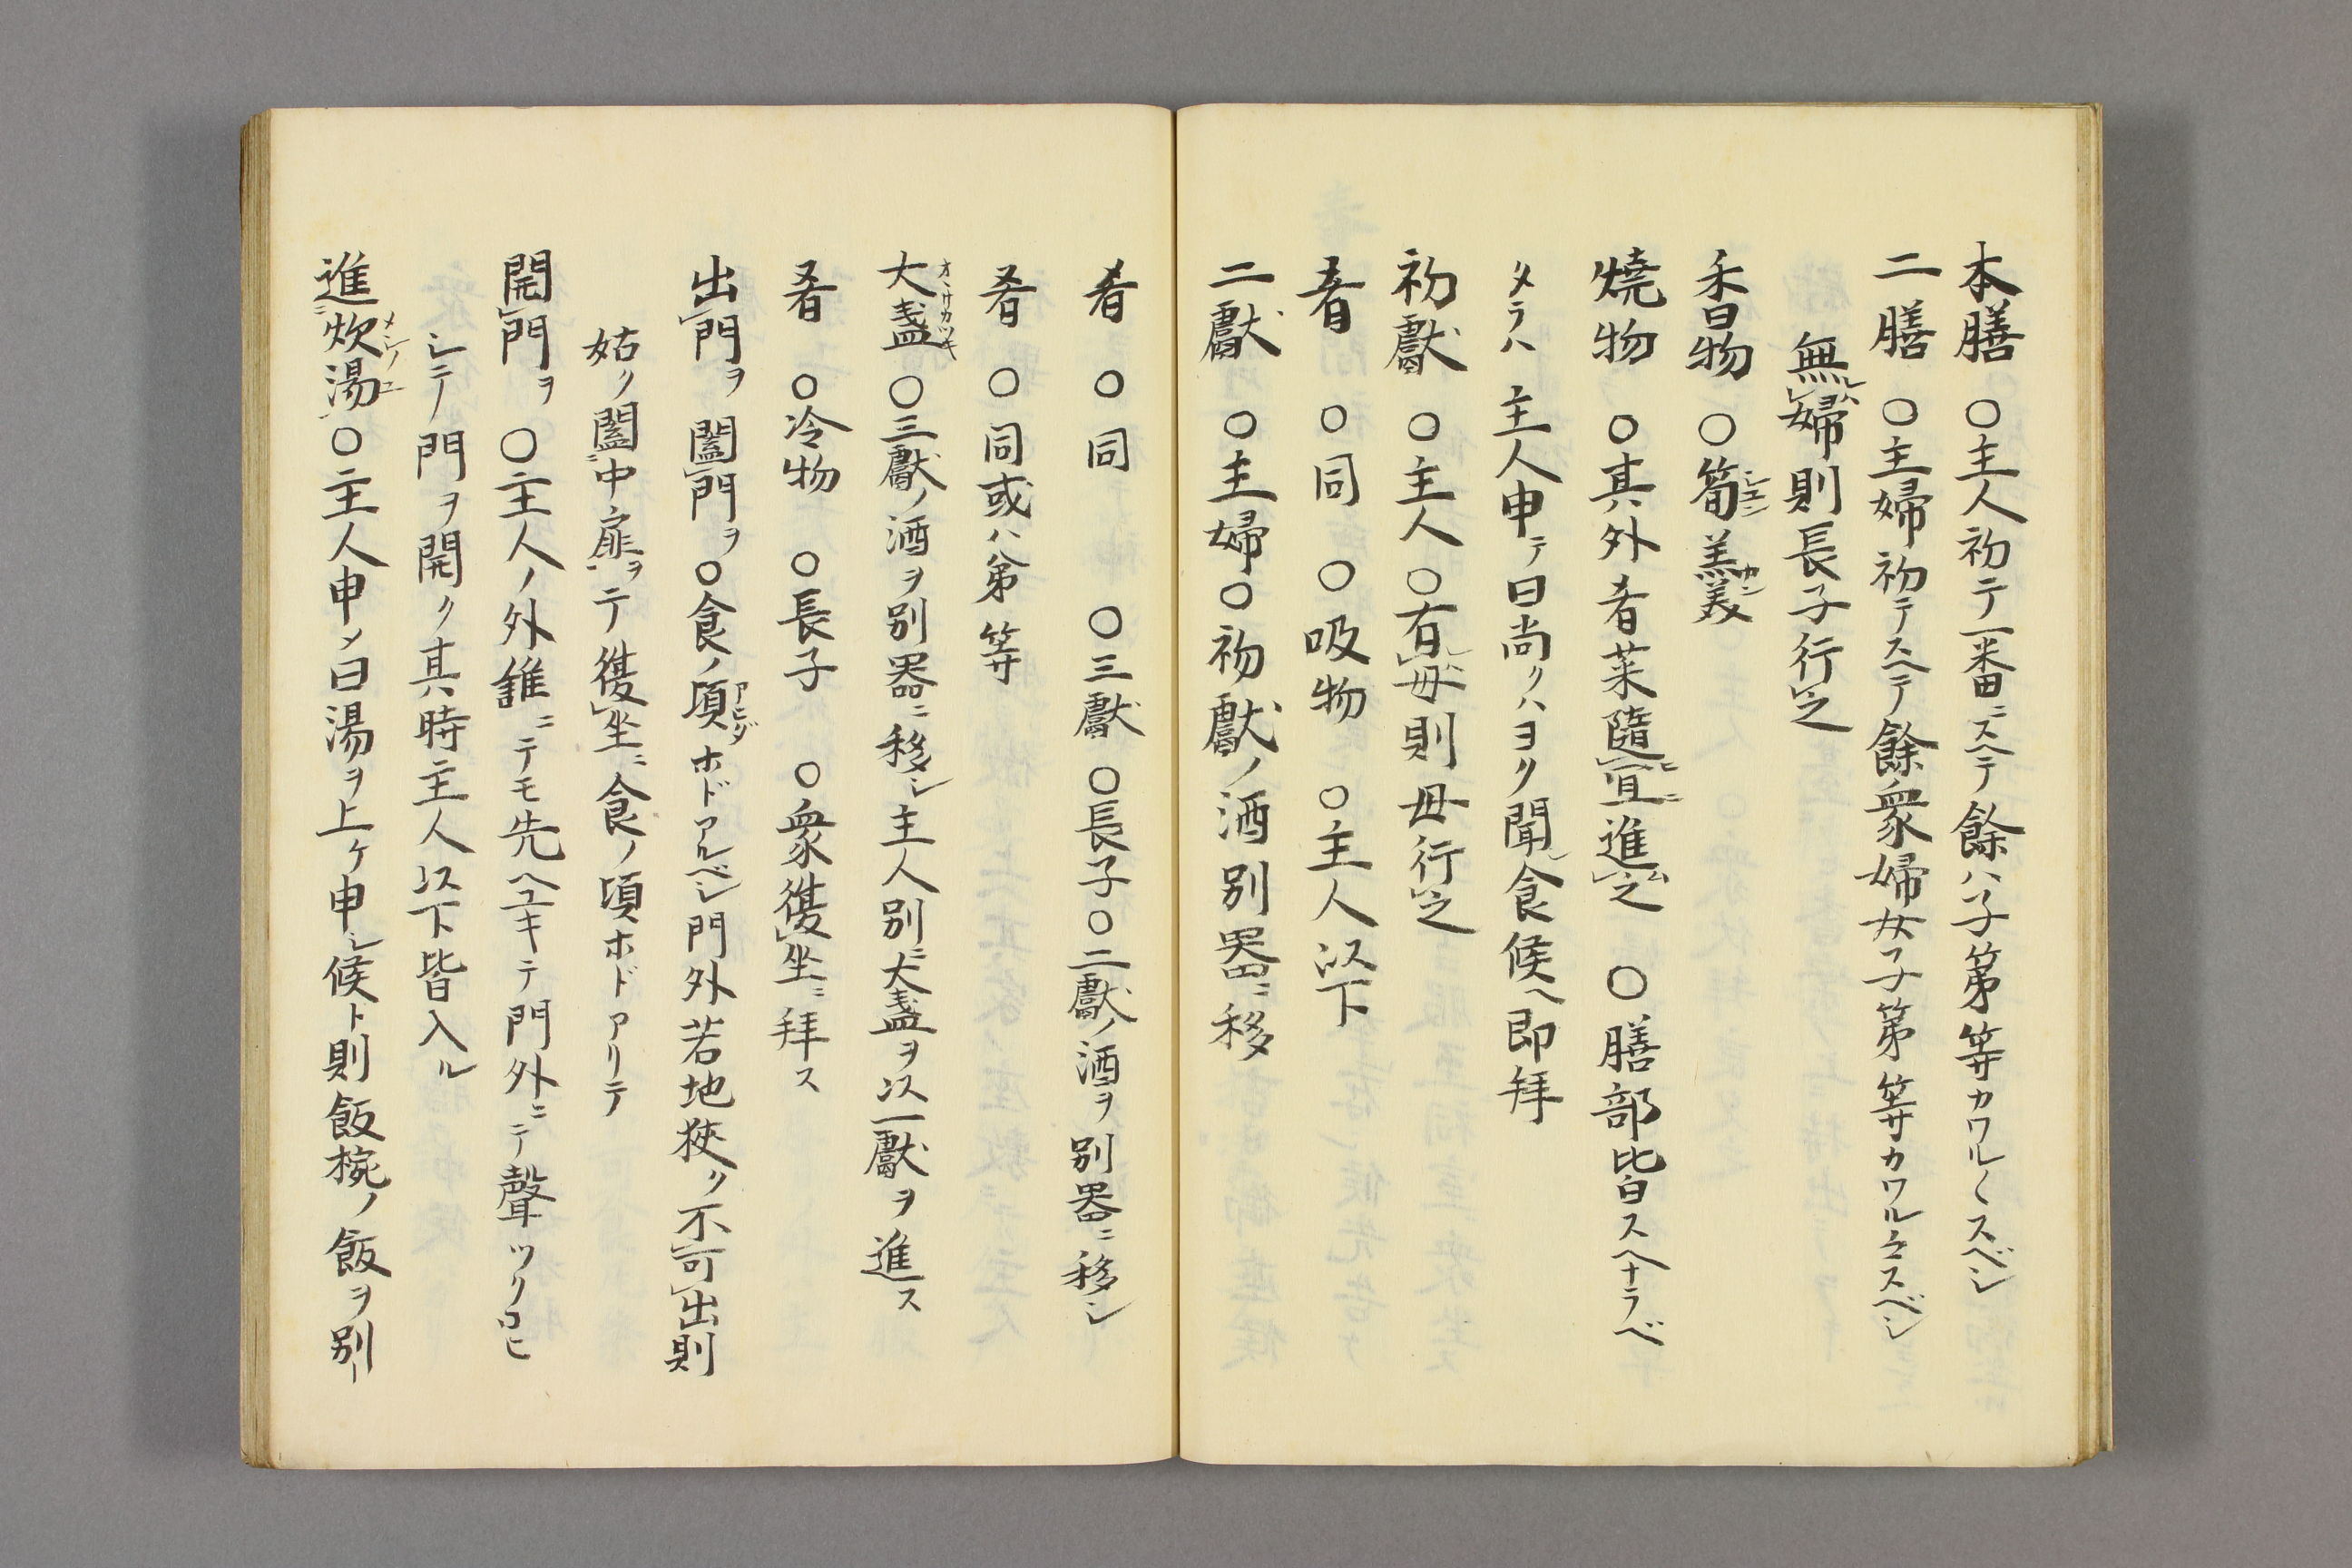 本膳 〇主人初テ一番ニスヘテ餘ハ子第等カワル〱スベシ
二膳 〇主婦初テスヘテ餘衆婦女子第等カワル〱スベシ
無婦則長子行之
香物 〇筍羹
焼物 〇其外肴菜隨宜進之 〇膳部皆スヘナラベ
タラハ 主人申テ曰尚クハヨク聞食候ヘ即拜
初獻 〇主人 〇有母則母行之
肴 〇同 〇吸物 〇主人以下
二獻 〇主婦〇初獻ノ酒別器ニ移
肴 〇同 〇三獻 〇長子〇二獻ノ酒ヲ別器ニ移シ
肴 〇同或ハ弟等
大盞 〇三獻ノ酒ヲ別器ニ移シ主人別ニ大盞ヲ以一獻ヲ進ス
肴 〇冷物 〇長子 〇衆復坐ニ拜ス
出門ヲ闔門ヲ〇食ノ頃ホドアルベシ門外若地狹ク不可出則
姑ク闔中扉ヲテ復坐ニ食ノ頃ホドアリテ
開門ヲ 〇主人ノ外誰ニテモ先ヘユキテ門外ニテ聲ツクロヒ
シテ門ヲ開ク其時主人以下皆入ル
進炊湯〇主人申メ曰湯ヲ上ケ申シ候ト則飯椀ノ飯ヲ別